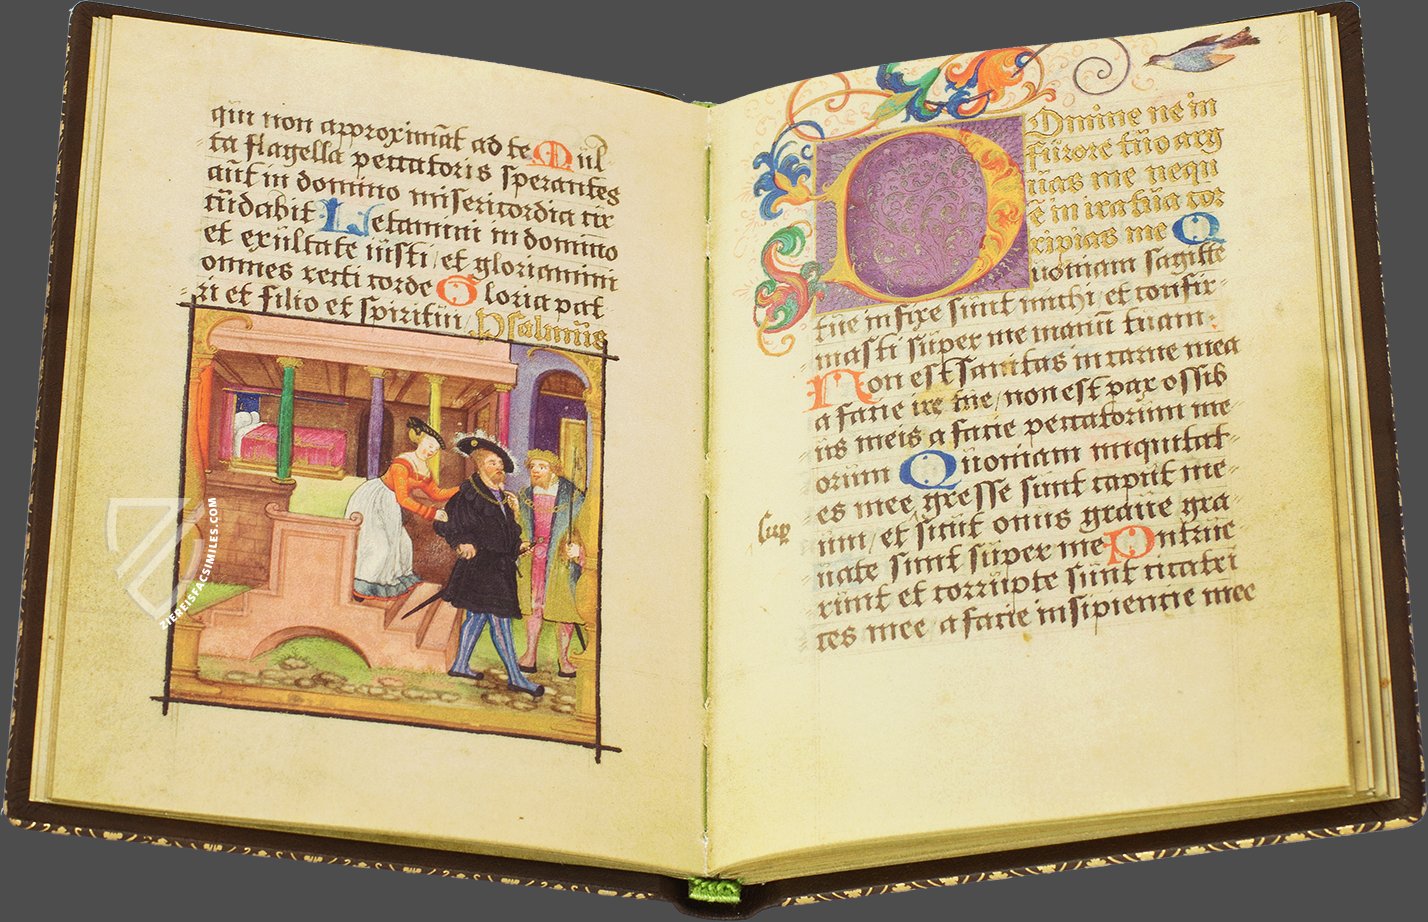 qui non approximāt ad te Mul
ta flagella peccatoris sperantes
aūt in domino misericordia cir
cūdabit Letamini in domino
et exultate iusti / et gloriamini
omnes recti corde Gloria pat
ri et filio et spiritui / Psalmus
ZIEREISFACSIMILES.COM
Domine ne in
furore tuo arg
uas me nequ
e in ira tua cor
ripias me Q
uoniam sagitte
tue infixe sunt michi / et confir-
masti super me manū tuam.
Non est sanitas in carne mea
a facie ire tue / non est pax ossib
us meis a facie peccatorum me
orum Quoniam iniquitat-
es mee gresse sunt caput me-
sup
um / et sicut onus graue gra
uate sunt super me Putrue
runt et corrupte sunt cicatri
ces mee a facie insipientie mee